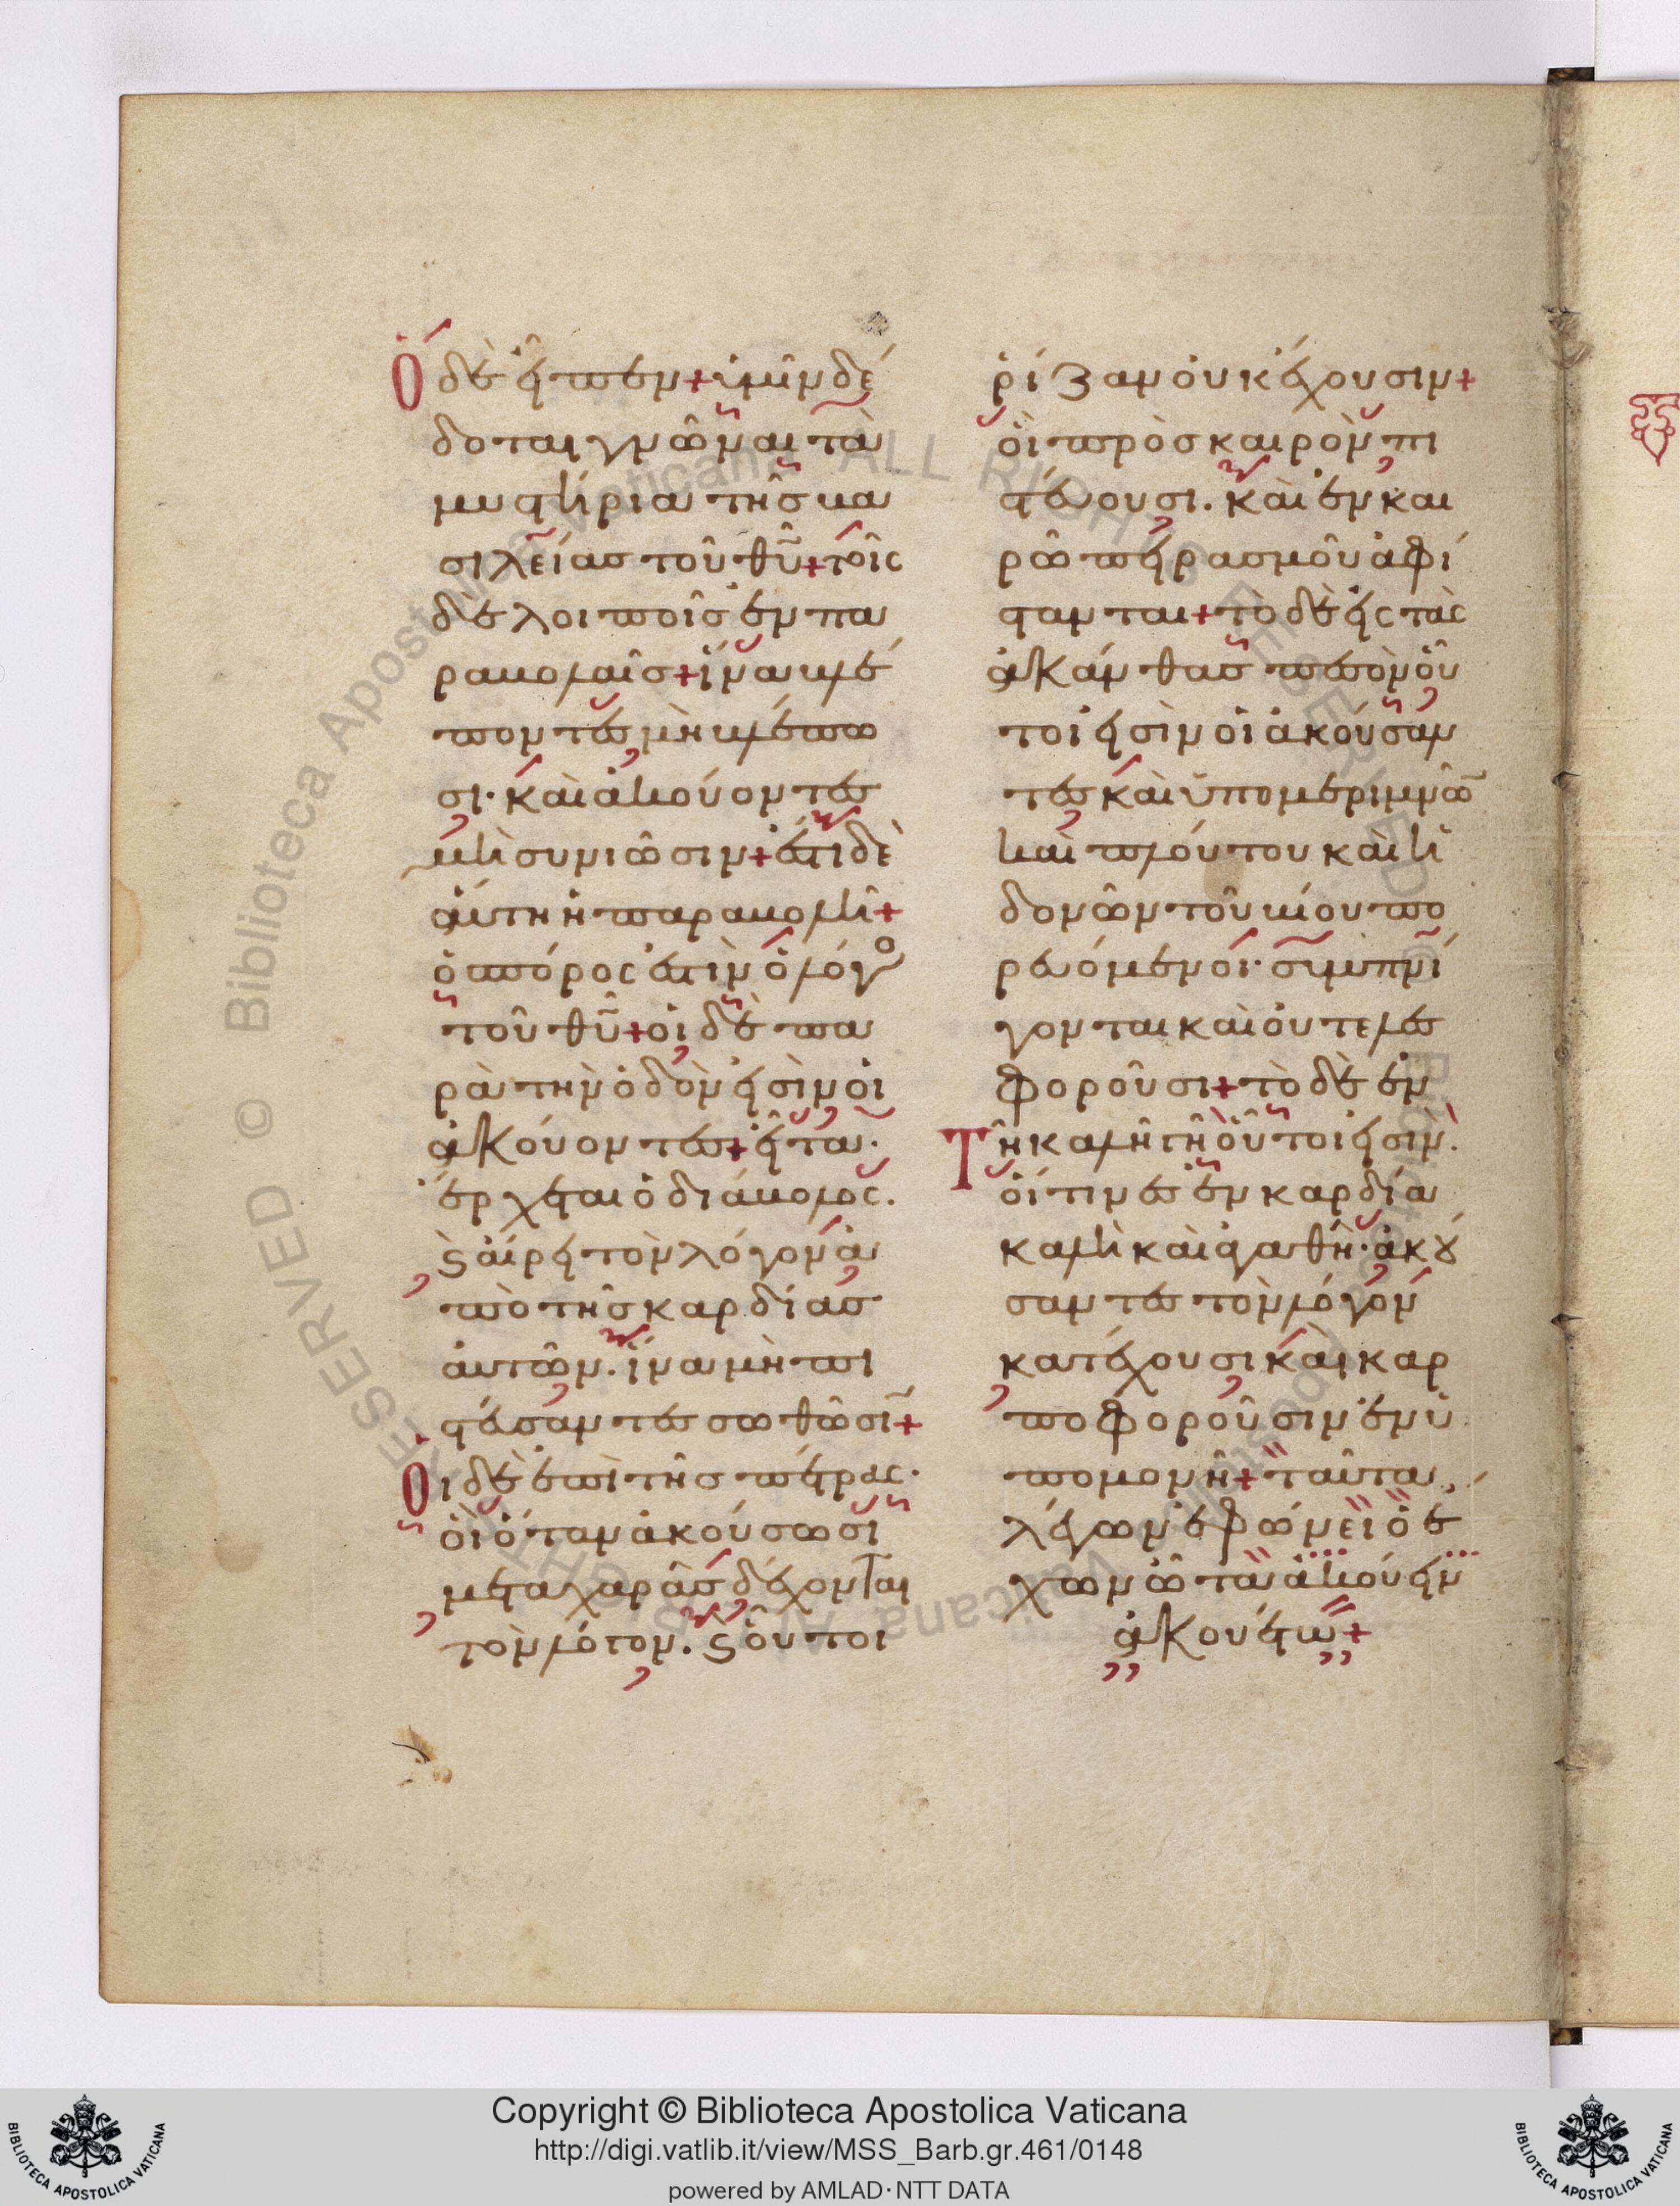 Ὁ δὲ εἶπεν + ὑμῖν δέ
δοται γνῶναι τὰ
μυστήρια τῆς βα
σιλείας τοῦ θῦ + τοῖς
δὲ λοιποῖς ἐν πα
ραβολαῖς + ἵνα βλέ
ποντες μὴ βλέπω
σι· καὶ ἀκούοντες
μὴ συνιῶσιν + ἔστι δὲ
αὕτη ἡ παραβολὴ +
ὁ σπόρος ἐστὶν ὁ λόγος
τοῦ θῦ + οἱ δὲ πα
ρὰ τὴν ὁδὸν εἰσὶν οἱ
ἀκούοντες + εἶτα·
ἔρχεται ὁ διάβολος.
ϛ αἴρει τὸν λόγον ἀ
πὸ τῆς καρδίας
αὐτῶν. ἵνα μὴ πι
στεύσαντες σωθῶσι +
Οἱ δὲ ἐπὶ τῆς πέτρας·
οἳ ὅταν ἀκούσωσι
μετα χαρᾶς δέχονται
τὸν λόγον. ϛ οὗτοι
ῥίζαν οὐκ ἔχουσιν +
οἳ πρὸς καιρὸν πι
στεύουσι. καὶ ἐν και
ρῶ πειρασμοῦ ἀφί
στανται + τὸ δὲ εἰς τὰς
ἀκάνθας πεσὸν οὗ
τοί εἰσὶν οἱ ἀκούσαν
τες καὶ ὑπο μεριμνῶ
καὶ πλούτου καὶ ἡ
δονῶν τοῦ βίου πο
ρευόμενοι· συμπνί
γονται καὶ οὐ τελεσ
φοροῦσι + τὸ δὲ ἐν
Τῆ καλῆ γῆ οὗτοι εἰσιν.
οἵτινες ἐν καρδία
καλὴ καὶ ἀγαθῆ· ἀκού
σαντες τὸν λόγον
κατέχουσι καὶ καρ
ποφοροῦσιν ἐν ὑ
πομονῆ + ταῦτα
λέγων ἐφώνει ὁ ἔ
χων ὦτα ἀκούειν
ἀκουέτω +
Copyright © Biblioteca Apostolica Vaticana
http://digi.vatlib.it/view/MSS_Barb.gr.461/0148
powered by AMLAD·NTT DATA